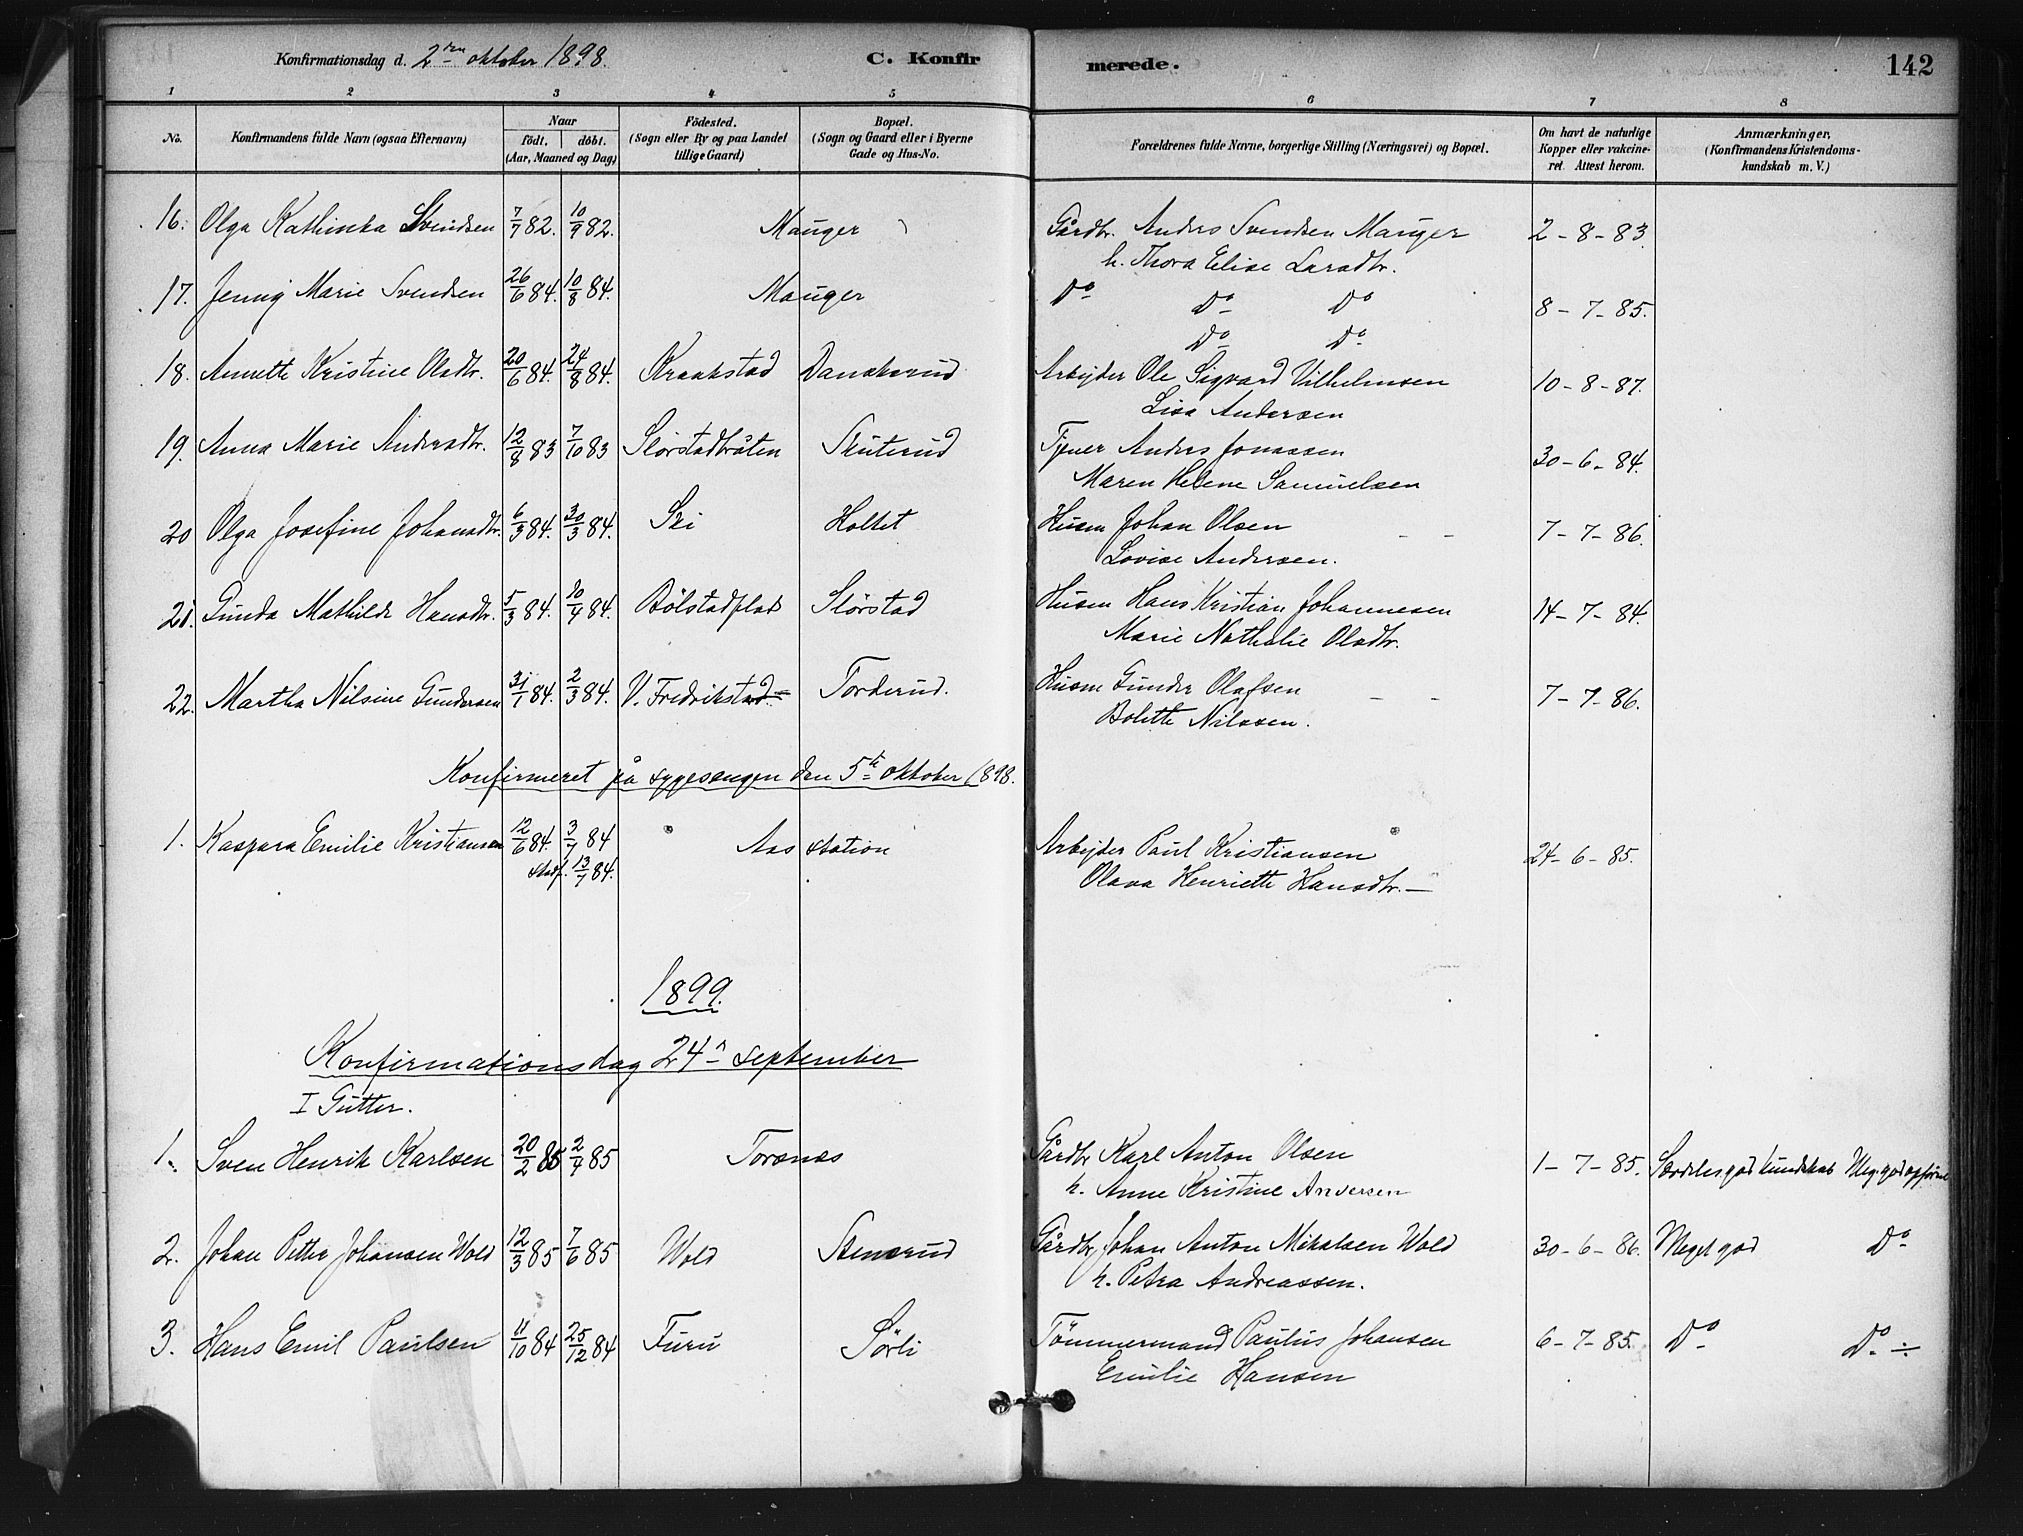 Konfirmationsdag d. 2den oktober 1898.
C. Konfirmerede.
142
1 2 3 4 5 6 7 8
No.
Konfirmandens fulde Navn (ogsaa Efternavn)
Naar
født, døbt.
(Aar, Maaned og Dag)
Födested.
(Sogn eller By og paa Landet
tillige Gaard)
Bopæl.
(Sogn og Gaard eller i Byerne
Gade og Hus-No.
Forældrenes fulde Navne, borgerlige Stilling (Næringsvei) og Bopæl.
Om havt de naturlige
Kopper eller vakcine-
ret. Attest herom.
Anmærkninger,
(Konfirmandens Kristendoms-
kundskab m. V.)
16. Olga Kathinka Svendsen 7/7 82. 10/9 82. Mauger Gårdbr. Anders Svendsen Mauger 2-8-83.
h. Thora Elise Larsdtr.
17. Jenny Marie Svendsen 26/6 84. 10/8 84. Mauger Do Do Do 8-7-85.
Do Do
18. Annette Kristine Olsdtr. 20/6 84. 24/8 84. Kraakstad Danskerud Arbejder Ole Sigvard Vilhelmsen 10-8-87.
Lisa Andersen
19. Anna Marie Andersdtr. 12/8 83 7/10 83 Störstadbråten Skuterud Tjener Anders Jonassen 30-6-84.
Maren Helene Samuelsen
20 Olga Josefine Johansdtr. 6/3 84. 30/3 84. Ski Holtet Husm Johan Olsen - - 7-7-86.
Lovise Andersen.
21. Gunda Mathilde Hansdtr. 5/3 84. 20/4 84. Bölstadplads Störstad Husm Hans Kristian Johannesen 14-7-84.
Marie Nathalie Olsdtr.
22. Martha Nilsine Gundersen 31/1 84. 2/3 84. V. Fredrikstad Torderud. Husm Gunder Olafsen - - 7-7-86.
Bolette Nilssen.
Konfirmeret på sygesengen den 5te oktober 1898.
1. Kaspara Emilie Kristiansen 12/6 84. 3/7 84 Aas station Arbejder Paul Kristiansen 24-6-85.
stadf. 13/7 84. Olava Henriette Hansdtr. -
1899.
Konfirmationsdag 24n september
I Gutter.
1. Sven Henrik Karlsen 20/2 85 2/4 85 Torsnes Gårdbr Karl Anton Olsen 1-7-85. Særdeles god kundskab Meg. god opførsel
h. Anne Kristine Andersen
2. Johan Petter Johansen Wold 12/3 85 7/6 85 Wold Stenerud Gårdbr Johan Anton Mikalsen Wold 30-6-86. Meget god Do
h. Petra Andreassen.
3. Hans Emil Paulsen 11/10 84 25/12 84 Furu Sörli Tömmermand Paulus Johansen 6-7-85. Do Do ÷
Emilie Hansen